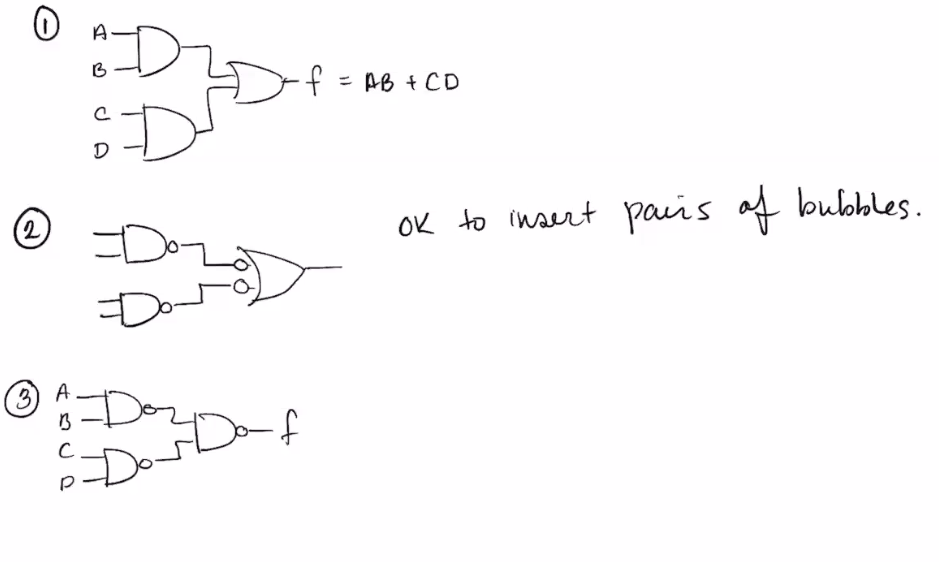 ①
A
B
f = AB + CD
C
D
②
OK to insert pairs of bubbles.
③
A
B
f
C
D